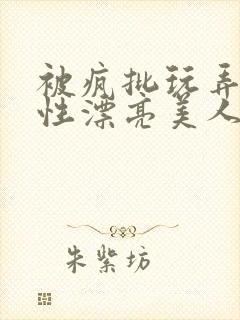 被疯批玩弄
性漂亮美人
朱紫坊